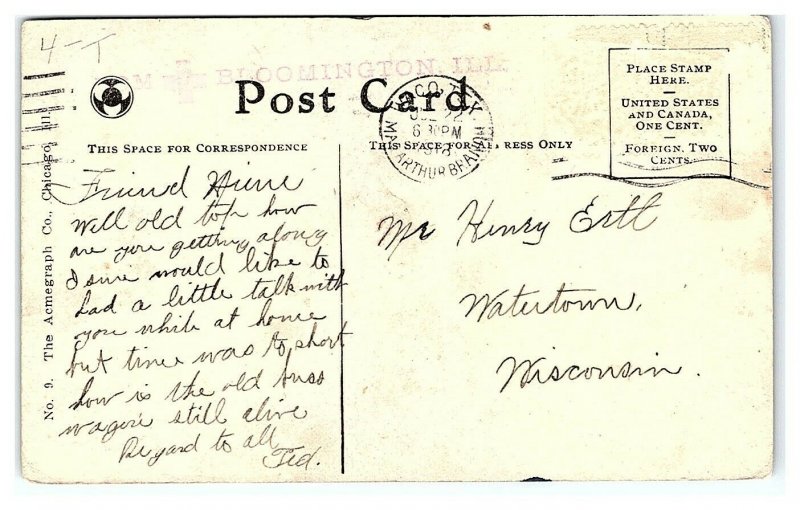 4-T
BLOOMINGTON, ILL.
Post Card
THIS SPACE FOR CORRESPONDENCE
RESS ONLY
PLACE STAMP
HERE.
UNITED STATES
AND CANADA,
ONE CENT.
FOREIGN, TWO
CENTS.
22
6 30 PM
ARTHUR BRANCH
No. 9. The Acmegraph Co., Chicago, Ill.
Friend
Well old top how
are you getting along
I sure would like to
had a little talk with
you while at home
but time was to short
how is the old buss
wagon still alive
Regard to all
Ted.
Mr Henry Ertl
Watertown,
Wisconsin.